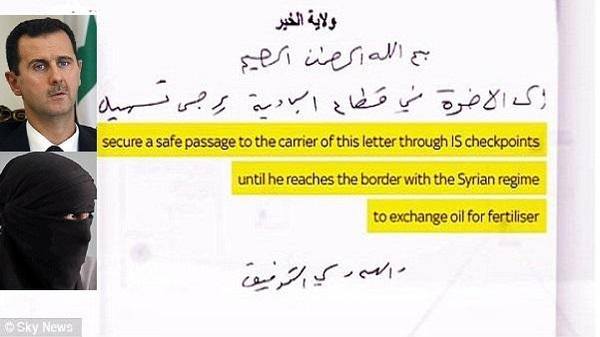 ولاية الخير
بسم الله الرحمن الرحيم
إلى الاخوة في قطاع البادية يرجى تسهيل
secure a safe passage to the carrier of this letter through IS checkpoints
until he reaches the border with the Syrian regime
to exchange oil for fertiliser
والله ولي التوفيق
© Sky News